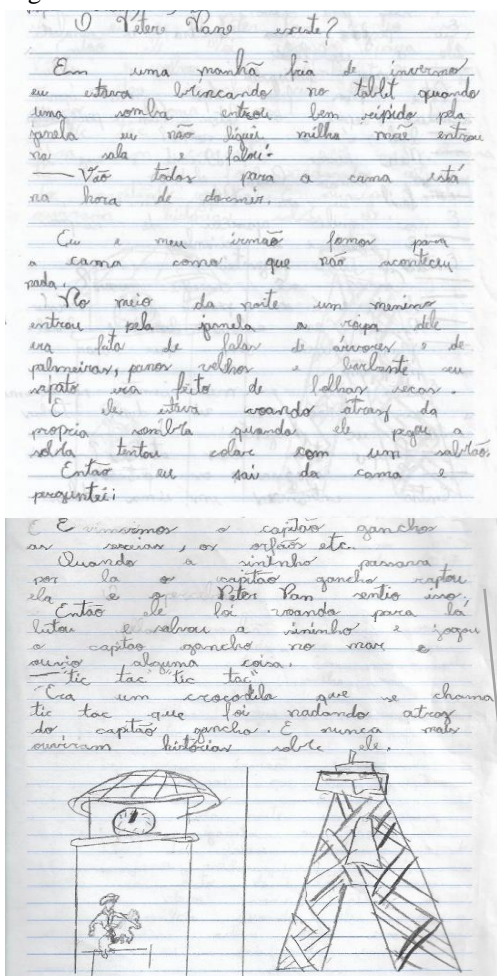 ① Petere Pane existe?
Em uma manhã fria de invermo
eu estava brincando no tablit quando
uma somba entrou bem rápido pela
janela eu não liguei milha mãe entrou
na sala e falou:
— Vão todos para a cama está
na hora de dormir.
Eu e meu irmão fomos para
a cama como que não aconteceu
nada.
No meio da noite um menino
entrou pela janela a roipa dele
era feita de folhas de árvores e de
palmeiras, panos velhos e barbante seu
sapato era feito de folhas secas.
E ele estava voando atraz da
propria sombra quando ele pegou a
tentou colar com um sabão.
Então eu sai da cama e
perguntei:
E o capitão ganchos
as sereias, os orfãos etc..
Quando a sininho passava
por la o capitão gancho raptou
ela e o Peter Pan sentio isso.
Então ele foi voando para lá
lutou e salvou a sininho e jogou
o capitão gancho no mar e
ouvio alguma coisa.
— "tic tac" "tic tac"
Era um crocodila que se chama
tic toc que foi nadando atroz
do capitão gancho. E nunca mais
ouviram histórias sobre ele.